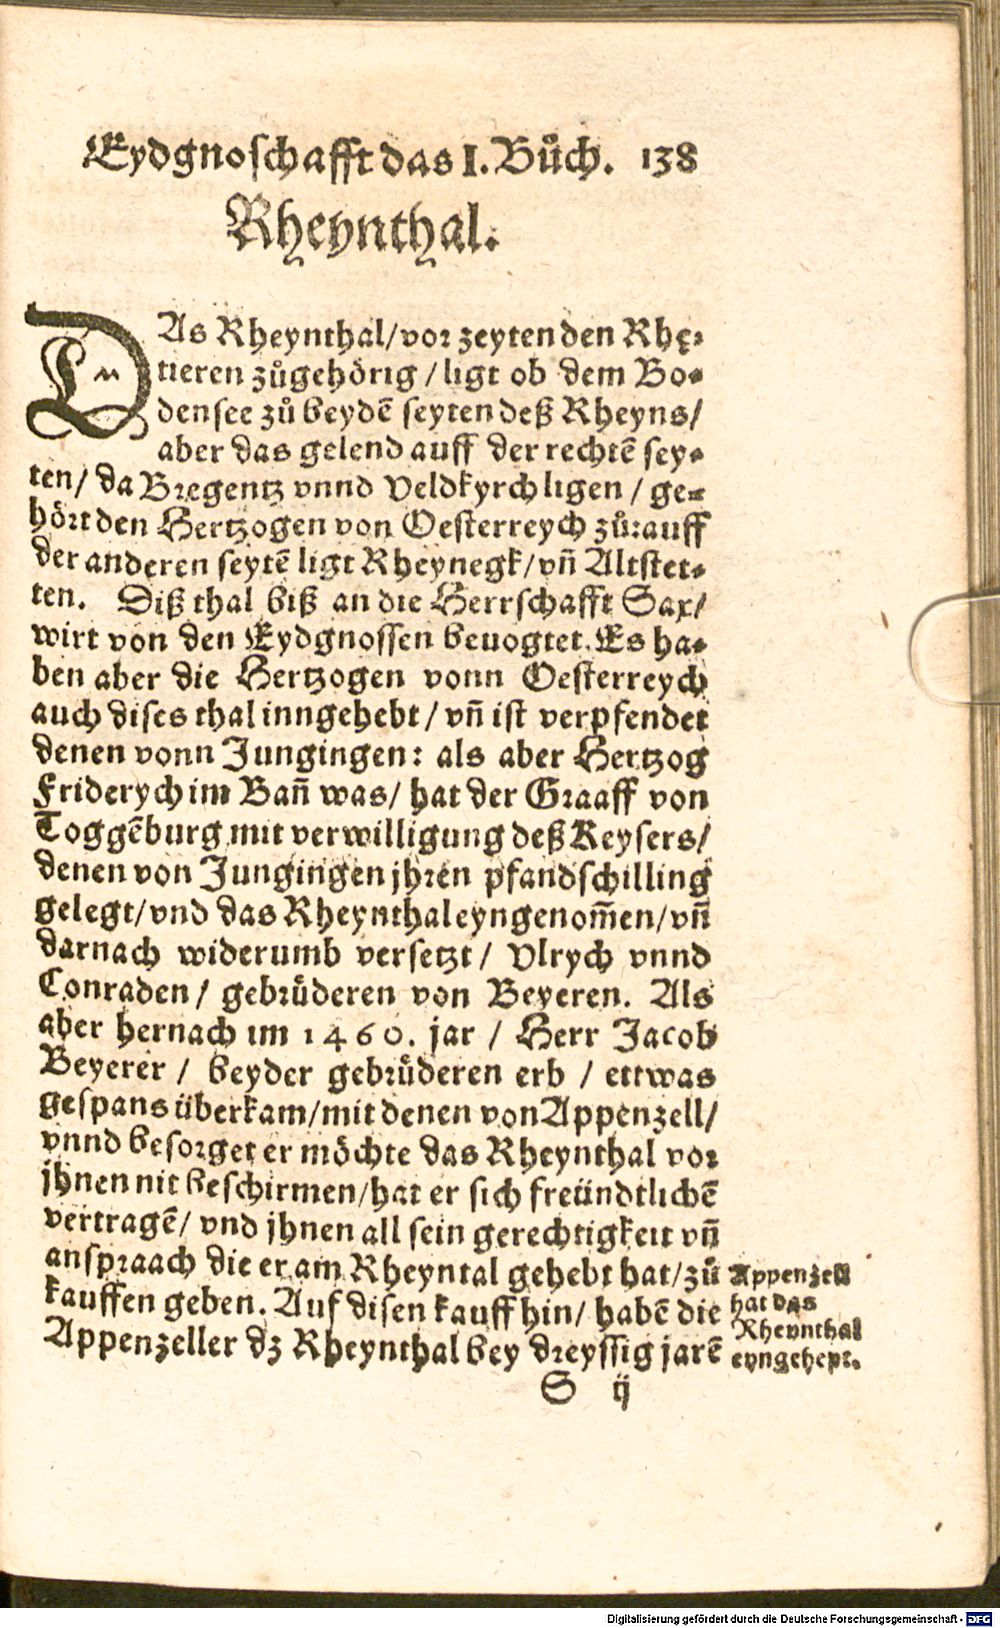 Eydgnoschafft das I. Bůch. 138
Rheynthal.
DAs Rheynthal/ vor zeyten den Rhę-
tieren zůgehörig / ligt ob dem Bo-
densee zů beydē seyten deß Rheyns/
aber das gelend auff der rechtē sey-
ten/ da Bregentz vnnd Veldkyrch ligen / ge-
hört den Hertzogen von Oesterreych zů: auff
der anderen seytē ligt Rheynegk/ vn̄ Altstet-
ten. Diß thal biß an die Herrschafft Sax/
wirt von den Eydgnossen beuogtet. Es ha-
ben aber die Hertzogen vonn Oesterreych
auch dises thal inngehebt/ vn̄ ist verpfendet
denen vonn Jungingen: als aber Hertzog
Friderych im Ban̄ was/ hat der Graaff von
Toggēburg mit verwilligung deß Keysers/
denen von Jungingen jhren pfandschilling
gelegt/ vnd das Rheynthal eyngenom̄en/ vn̄
darnach widerumb versetzt / Vlrych vnnd
Conraden / gebrüderen von Beyeren. Als
aber hernach im 1460. jar / Herr Jacob
Beyerer / beyder gebrüderen erb / ettwas
gespans überkam/ mit denen von Appenzell/
vnnd besorget er möchte das Rheynthal vor
jhnen nit beschirmen/ hat er sich freündtlichē
vertragē/ vnd jhnen all sein gerechtigkeit vn̄
anspraach die er am Rheyntal gehebt hat/ zů
kauffen geben. Auf disen kauff hin/ habē die
Appenzeller dz Rheynthal bey dreyssig jarē
Appenzell
hat das
Rheynthal
eyngehept.
S ij
Digitalisierung gefördert durch die Deutsche Forschungsgemeinschaft - DFG